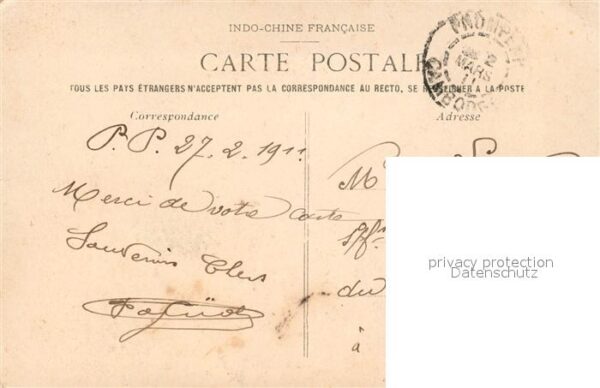 INDO-CHINE FRANÇAISE
CARTE POSTALE
TOUS LES PAYS ÉTRANGERS N'ACCEPTENT PAS LA CORRESPONDANCE AU RECTO, SE RENSEIGNER A LA POSTE
Correspondance
Adresse
PNOMPENH
2
MARS
11
CAMBODGE
P.P. 27.2.1911
Merci de votre carte
Souvenirs
M
du
à
privacy protection
Datenschutz